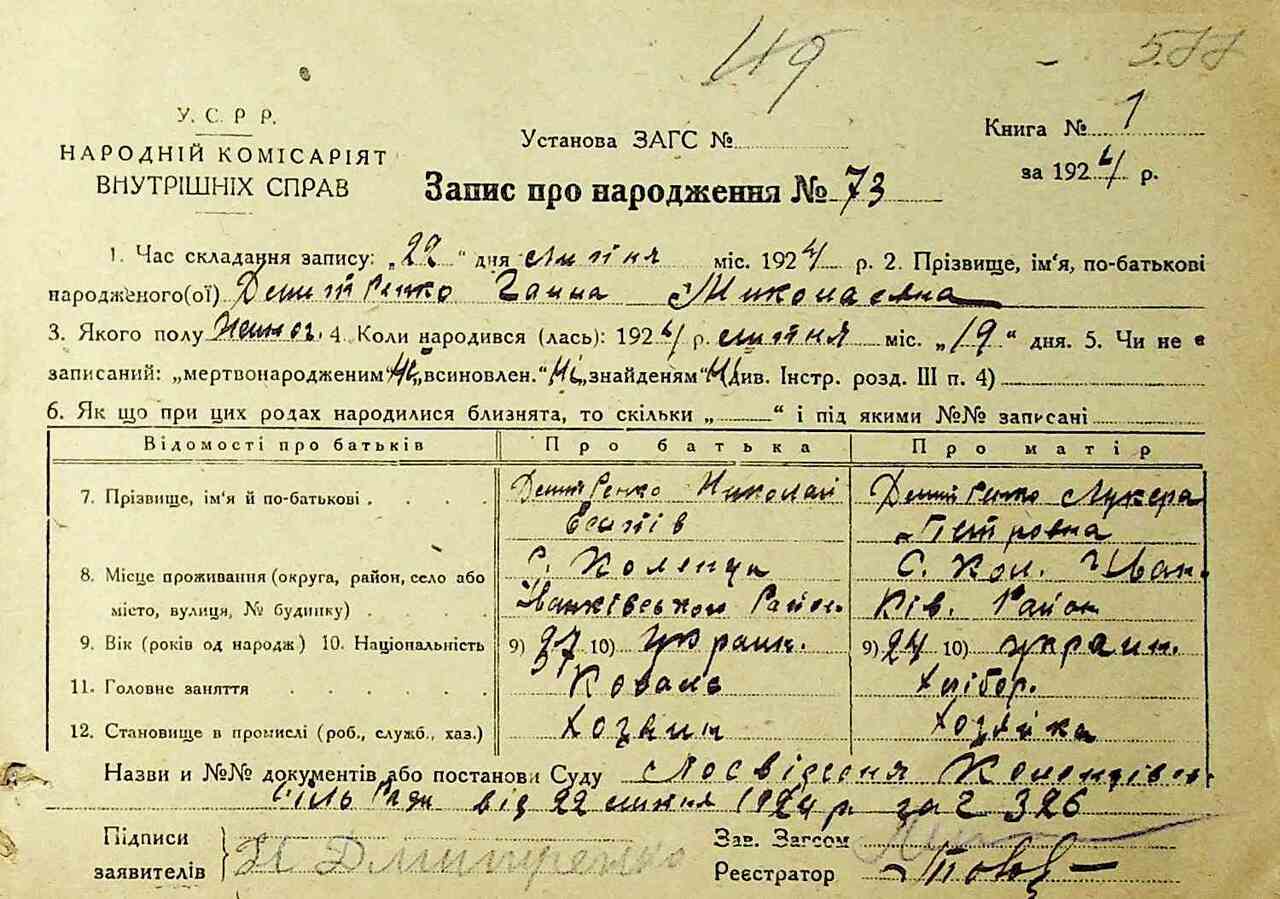 49 - 577
У. С. Р. Р.
НАРОДНІЙ КОМІСАРІЯТ
ВНУТРІШНІХ СПРАВ
Установа ЗАГС №
Книга № 1
за 1924 р.
Запис про народження № 73
1. Час складання запису: „22“ дня липня міс. 1924 р. 2. Прізвище, ім‘я, по-батькові
народженого(ої) Дмитренко Ганна Миколаєвна
3. Якого полу Жіноч. 4. Коли народився (лась): 1924 р. липня міс. „19“ дня. 5. Чи не є
записаний: „мертвонародженим“ Ні „всиновлен.“ Ні „знайденям“ Ні (див. Інстр. розд. III п. 4)
6. Як що при цих родах народилися близнята, то скільки „ “ і під якими №№ записані
Відомості про батьків Про батька Про матір
7. Прізвище, ім‘я й по-батькові . . . . Дмитренко Николай Дмитренко Лукера
Есипів Петровна
8. Місце проживання (округа, район, село або С. Коленци С. Кол. Іван-
місто, вулиця, № будинку) . . . . Іванківського Район. ків. Район
9. Вік (років од народж) 10. Національність 9) 37 10) украин. 9) 24 10) украин.
11. Головне заняття . . . . . . Коваль хлібор.
12. Становище в промислі (роб., служб., хаз.) хозаин хозяйка
Назви и №№ документів або постанови Суду Посвідсеня
Сіль Ради від 22 липня 1924 р. за č 326
Підписи
заявителів
Н Дмитренко
Зав. Загсом
Реєстратор